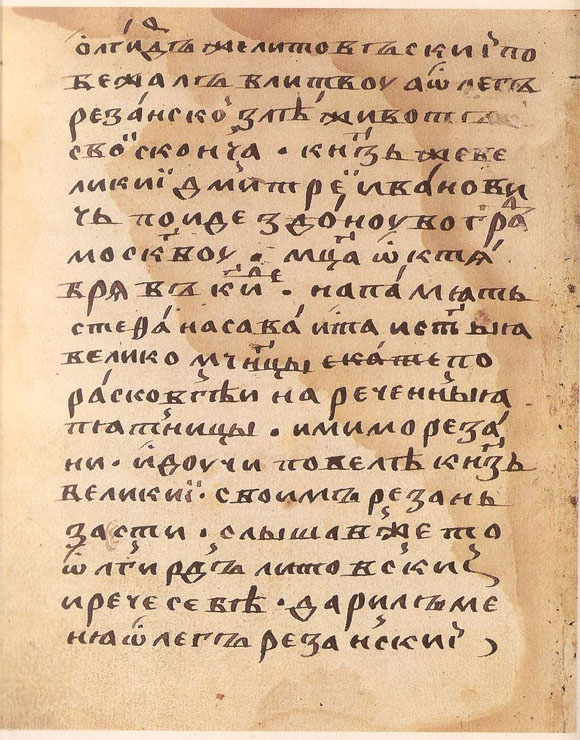 ѻлгирдъ же литовъскиї по
бежалъ влитвоу а ѡлегъ
резанско злѣ животъ
своі сконча · кн҃зь же ве
ликиї дмитреї иванови
чь поиде здоноу во гра
москвоу · мц҃а ѡктѧ
врѧ въ ки · на памѧть
стефана сава ита и ст҃ыꙗ
велико мч҃нцы екаже по
расковг҃ѣи нареченныꙗ
пꙗтницы · и мимо реза
ни · идоучи повелѣ кн҃зь
великиї · своимъ резань
засти · слышав же то
ѡлгирдъ литовскиї
и рече себѣ · дарилъ ме
нꙗ ѡлегъ резанскиї